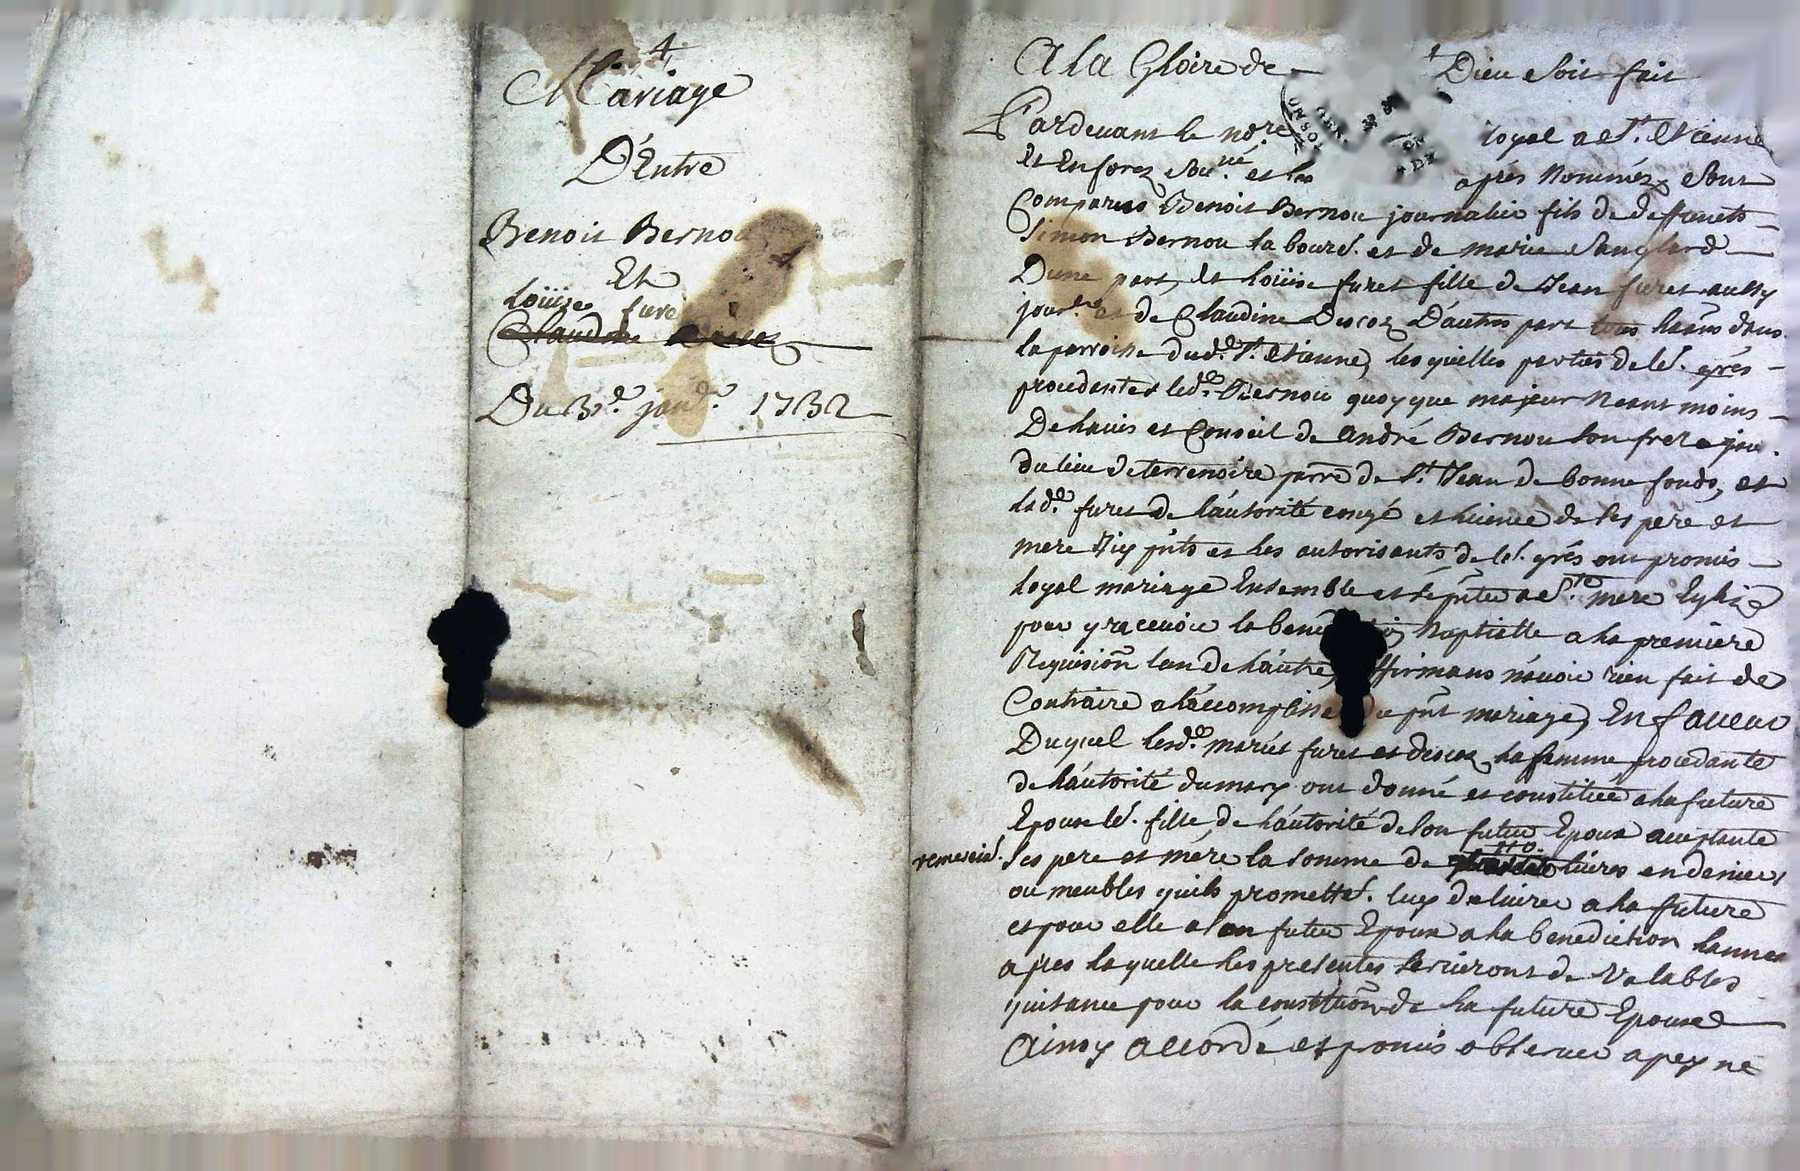 4
Mariage
D'Entre
Benoit Bernou
Et
Loüise furet
Claudine Descoz
Du 31e. janr. 1732
A la Gloire de Dieu Soit fait
Pardevant le nore royal a St. Etienne
Et En forez Sousné. et les après Nommés Sont
Comparus Benoit Bernou journalier fils de deffuncts
Simon Bernou laboure. et de marie Sanglard
D'une part, Et Loüise furet fille de Jean furet aussy
jourer et de Claudine Descoz D'autre part tous habns dans
la parroisse dudt. St. Etienne, les quelles parties de le. grés
procedentes led. Bernou quoy que majeur Neant moins
De lavis et Conseil de André Bernou son frere jou.
du lieu de terrenoire parre de St. Jean de bonnefonds, et
lad. furet de l'autorité congé et licence de ses pere et
mere Icy pnts et les autorisants de le. grés ont promis
loyal mariage Ensemble et se pnter a Ste. mere Eglise
pour y recevoir la bene Nuptialle a la premiere
Requision lun de l'autre, affirmans n'avoir rien fait de
Contraire a l'accomplisse du pnt mariage, En faveur
Duquel lesd. mariés furet et descoz, la femme procedante
de l'autorité du mary ont donné et constitué a la future
Epouse le. fille, de l'autorité de son futur Epoux acceptante
remercia. Ses pere et mere la somme de 110. livres en deniers
ou meubles quils promette. luy delivrer a la future
et pour elle a son futur Epoux a la benediction lannee
apres laquelle les presentes serviront de valables
quitance pour la constitution de la future Epouse
Ainsy accordé et promis observer a peyne